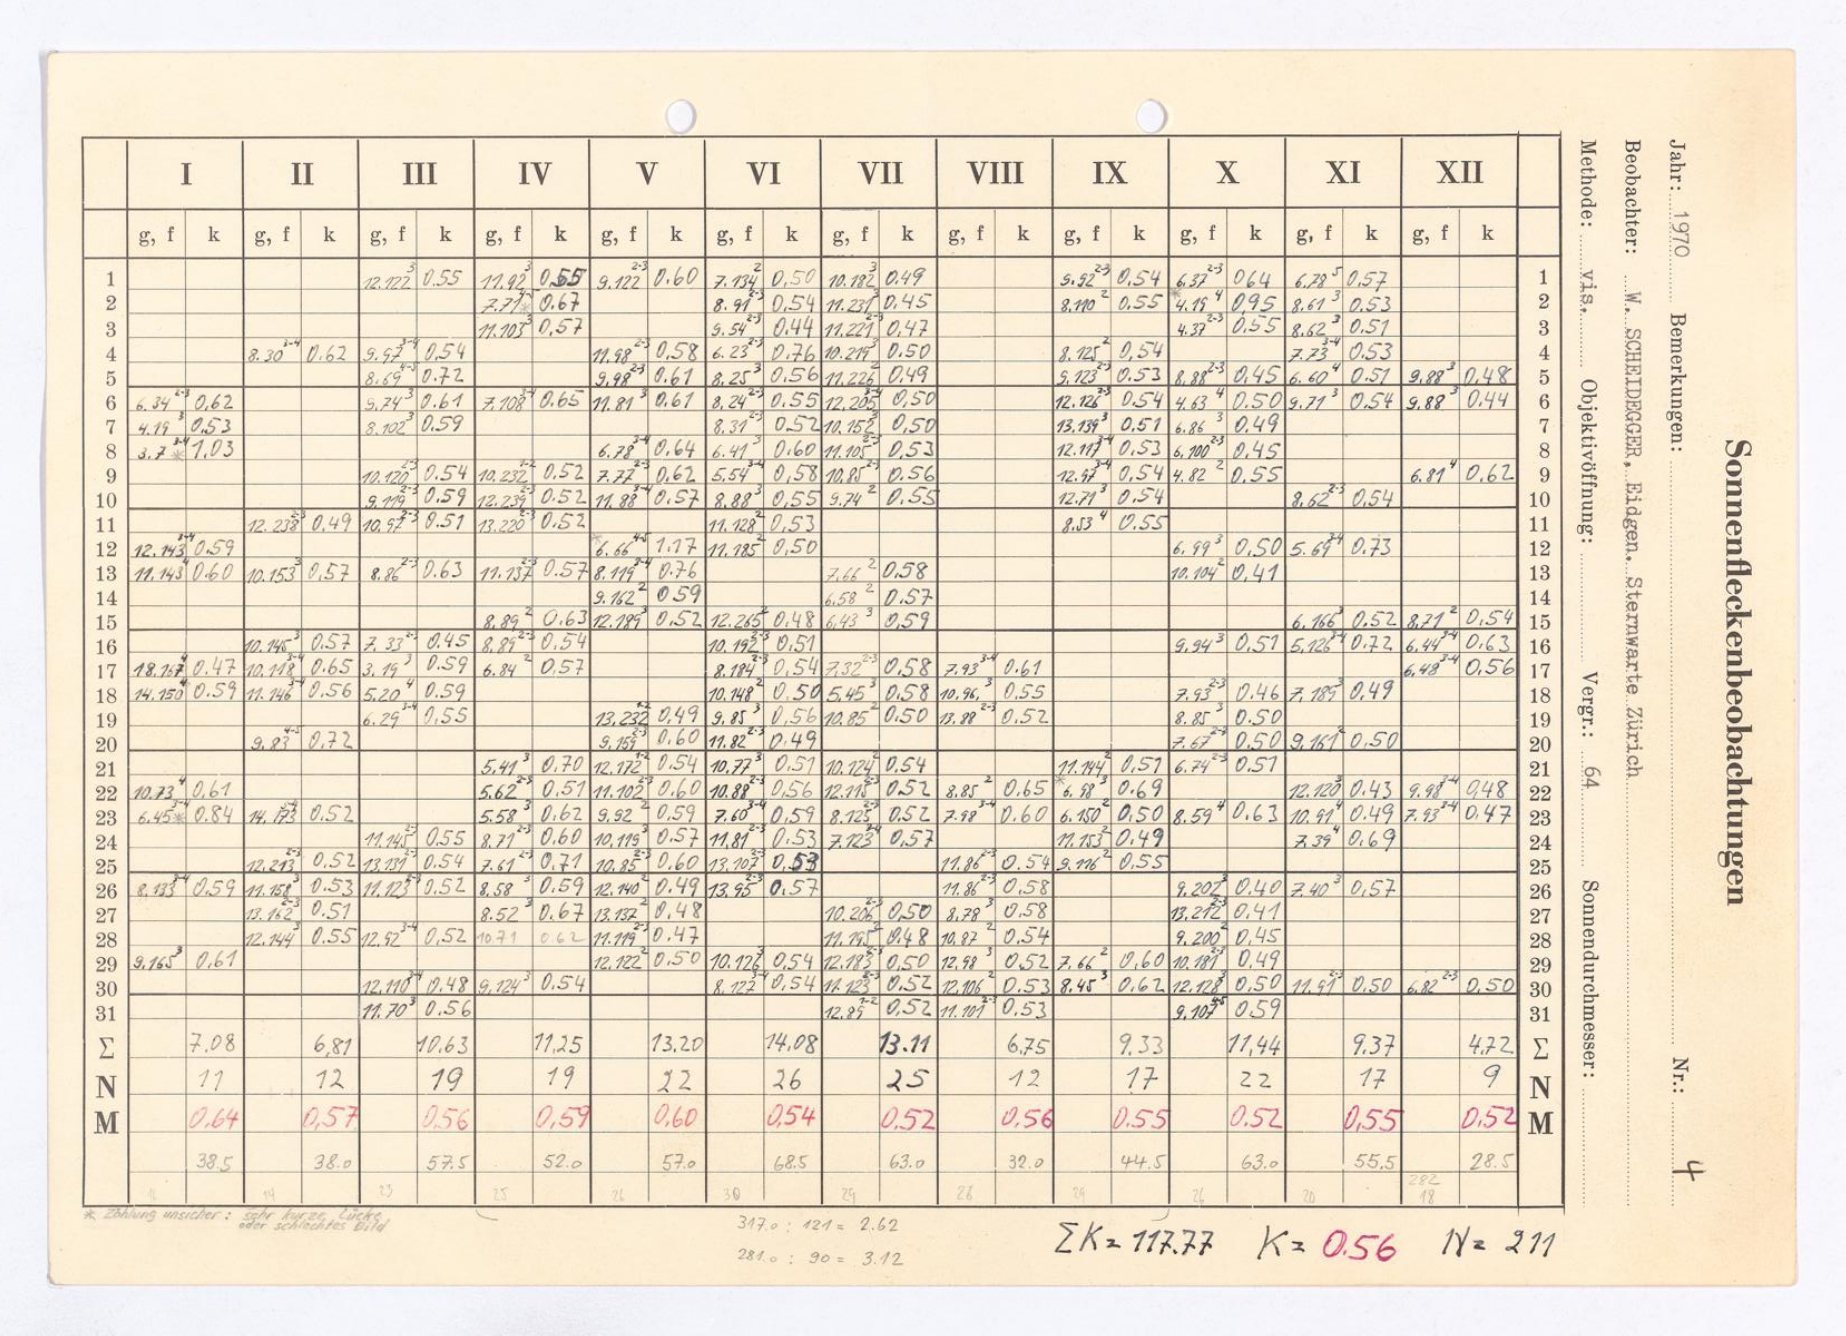 Sonnenfleckenbeobachtungen
Jahr: 1970 Bemerkungen: Nr.: 4
Beobachter: W. SCHEIDEGGER, Eidgen. Sternwarte Zürich
Methode: vis. Objektivöffnung: Vergr.: 64 Sonnendurchmesser:
I II III IV V VI VII VIII IX X XI XII
g, f k g, f k g, f k g, f k g, f k g, f k g, f k g, f k g, f k g, f k g, f k g, f k
1 12.122 3 0.55 11.92 3 0.55 9.122 2-3 0.60 7.134 2 0,50 10.182 3 0.49 9.92 2-3 0.54 6.37 2-3 064 6.78 5 0.57 1
2 7.71 * 0.67 8.91 2-3 0.54 11.231 3 0.45 8.110 2 0.55 * 4.19 4 0,95 8.61 3 0.53 2
3 11.103 3 0,57 9.54 2-3 0.44 11.221 2-3 0.47 4.37 2-3 0.55 8.62 3 0.51 3
4 8.30 3-4 0.62 9.97 3-4 0,54 11.98 2-3 0,58 6.23 2-3 0.76 10.219 3 0.50 8.125 2 0,54 7.73 3-4 0.53 4
5 8.69 4-5 0.72 9.98 2-3 0.61 8.25 3 0.56 11.226 2 0,49 9.123 2-3 0.53 8.88 2-3 0,45 6.60 4 0.51 9.88 3 0,48 5
6 6.34 2-3 0,62 9.74 3 0.61 7.108 3-4 0.65 11.81 3 0.61 8,24 2-3 0.55 12,205 3-4 0,50 12.126 2-3 0.54 4.63 4 0.50 9.71 3 0,54 9.88 3 0.44 6
7 4.19 3 0.53 8.102 3 0.59 8.31 3 0.52 10.152 3 0,50 13.139 3 0,51 6.86 3 0.49 7
8 3.7 3-4 * 1,03 6.78 3-4 0,64 6.41 3 0.60 11.105 2-3 0,53 12.117 3-4 0,53 6.100 2-3 0,45 8
9 10.120 2-3 0.54 10,232 1-2 0.52 7.77 2-3 0.62 5.54 3-4 0,58 10.85 2-3 0.56 12.97 3-4 0,54 4.82 2 0.55 6.81 4 0,62 9
10 9.119 2-3 0.59 12.239 2-3 0.52 11.88 3-4 0.57 8.88 3 0,55 9.74 2 0.55 12.71 3 0,54 8.62 2-3 0,54 10
11 12.238 2-3 0,49 10,97 2-3 0.51 13.220 2-3 0,52 11.128 2 0,53 8.53 4 0.55 11
12 12.143 3-4 0.59 * 6.66 4-5 1.17 11.185 2 0,50 6.99 3 0,50 5.69 3-4 0,73 12
13 11.143 4 0.60 10.153 3 0,57 8.86 2-3 0.63 11.137 2-3 0.57 8.119 3-4 0.76 7.66 2 0,58 10.104 2 0,41 13
14 9.162 2 0 59 6.58 2 0.57 14
15 8.89 2 0,63 12.189 3 0,52 12.265 2 0,48 6.43 3 0,59 6.166 3 0.52 8.71 2 0,54 15
16 10.145 3 0,57 7.33 2-3 0.45 8.89 2-3 0.54 10.192 2-3 0,51 9.94 3 0,51 5,126 3-4 0.72 6.44 3-4 0.63 16
17 18.167 4 0.47 10.118 3-4 0.65 3,19 3 0.59 6.84 2 0,57 8.184 2-3 0,54 7.32 2-3 0,58 7.93 3-4 0.61 6.48 3-4 0,56 17
18 14.150 4 0.59 11.146 3-4 0,56 5.20 4 0.59 10.148 2 0,50 5.45 3 0,58 10,96, 3 0,55 7.93 2-3 0.46 7,189 3 0,49 18
19 6.29 3-4 0,55 13.232 1-2 0,49 9.85 3 0,56 10,85 2 0.50 13.88 2-3 0,52 8.85 3 0.50 19
20 9.83 4-5 0.72 9.159 2-3 0.60 11.82 2-3 0,49 7.67 2-3 0.50 9,161 2 0,50 20
21 5.41 3 0,70 12.172 1-2 0.54 10,77 3 0.51 10,124 2 0,54 11.144 2 0,51 6.74 2-3 0.51 21
22 10.73 4 0,61 5.62 2-3 0,51 11.102 2 0,60 10.88 2-3 0,56 12.115 2-3 0,52 8.85 2 0.65 * 6.98 3 0.69 12.120 3 0.43 9.98 3-4 0,48 22
23 6.45 3-4 * 0.84 14.173 3-4 0,52 5.58 3 0,62 9.92 2 0.59 7.60 3-4 0,59 8.125 2-3 0.52 7.98 3-4 0.60 6.150 2 0,50 8.59 4 0,63 10.91 4 0,49 7.93 3-4 0.47 23
24 11.145 2-3 0.55 8.71 2-3 0.60 10,119 3 0.57 11,81 2-3 0.53 7.123 3-4 0,57 11.153 2 0.49 7.39 4 0.69 24
25 12.213 2-3 0.52 13.131 2-3 0,54 7.61 2-3 0,71 10.85 2-3 0.60 13,107 2 0,53 11.86 2-3 0.54 9.116 2 0,55 25
26 8.133 3-4 0.59 11.158 3 0.53 11.123 2-3 0.52 8.58 3 0,59 12.140 2 0.49 13,95 2-3 0.57 11.86 2-3 0,58 9.202 3 0,40 7.40 3 0,57 26
27 13.162 2-3 0.51 8.52 3 0.67 13,137 2 0,48 10.206 2-3 0,50 8,78 3 0.58 13.212 2-3 0,41 27
28 12.144 3 0.55 12.92 3-4 0,52 10.71 0.62 11.119 2-3 0.47 11.195 2 0.48 10,87 2 0,54 9.200 2 0,45 28
29 9.165 3 0,61 12.122 2 0,50 10.126 3 0,54 12.183 2-3 0,50 12,98 3 0.52 7.66 2 0,60 10.181 2-3 0.49 29
30 12,110 3-4 0.48 9.124 3 0.54 8.127 3-4 0,54 11.123 2-3 0.52 12,106 2 0.53 8.45 3 0.62 12.128 3 0,50 11.91 2-3 0,50 6.82 2-3 0,50 30
31 11.70 3 0.56 12,89 1-2 0,52 11.101 2-3 0.53 9.107 4-5 0.59 31
Σ 7.08 6,81 10.63 11,25 13.20 14.08 13.11 6.75 9,33 11,44 9,37 4,72 Σ
N 11 12 19 19 22 26 25 12 17 22 17 9 N
M 0.64 0,57 0,56 0,59 0,60 0,54 0.52 0.56 0.55 0.52 0,55 0,52 M
38.5 38.0 57.5 52.0 57.0 68.5 63.0 32.0 44.5 63.0 55.5 28.5
14 23 25 26 30 29 28 29 26 20 282 18
* Zählung unsicher: sehr kurze Lücke
oder schlechtes Bild
317.0 : 121 = 2.62
281.0 : 90 = 3.12
ΣK= 117.77 K= 0.56 N= 211